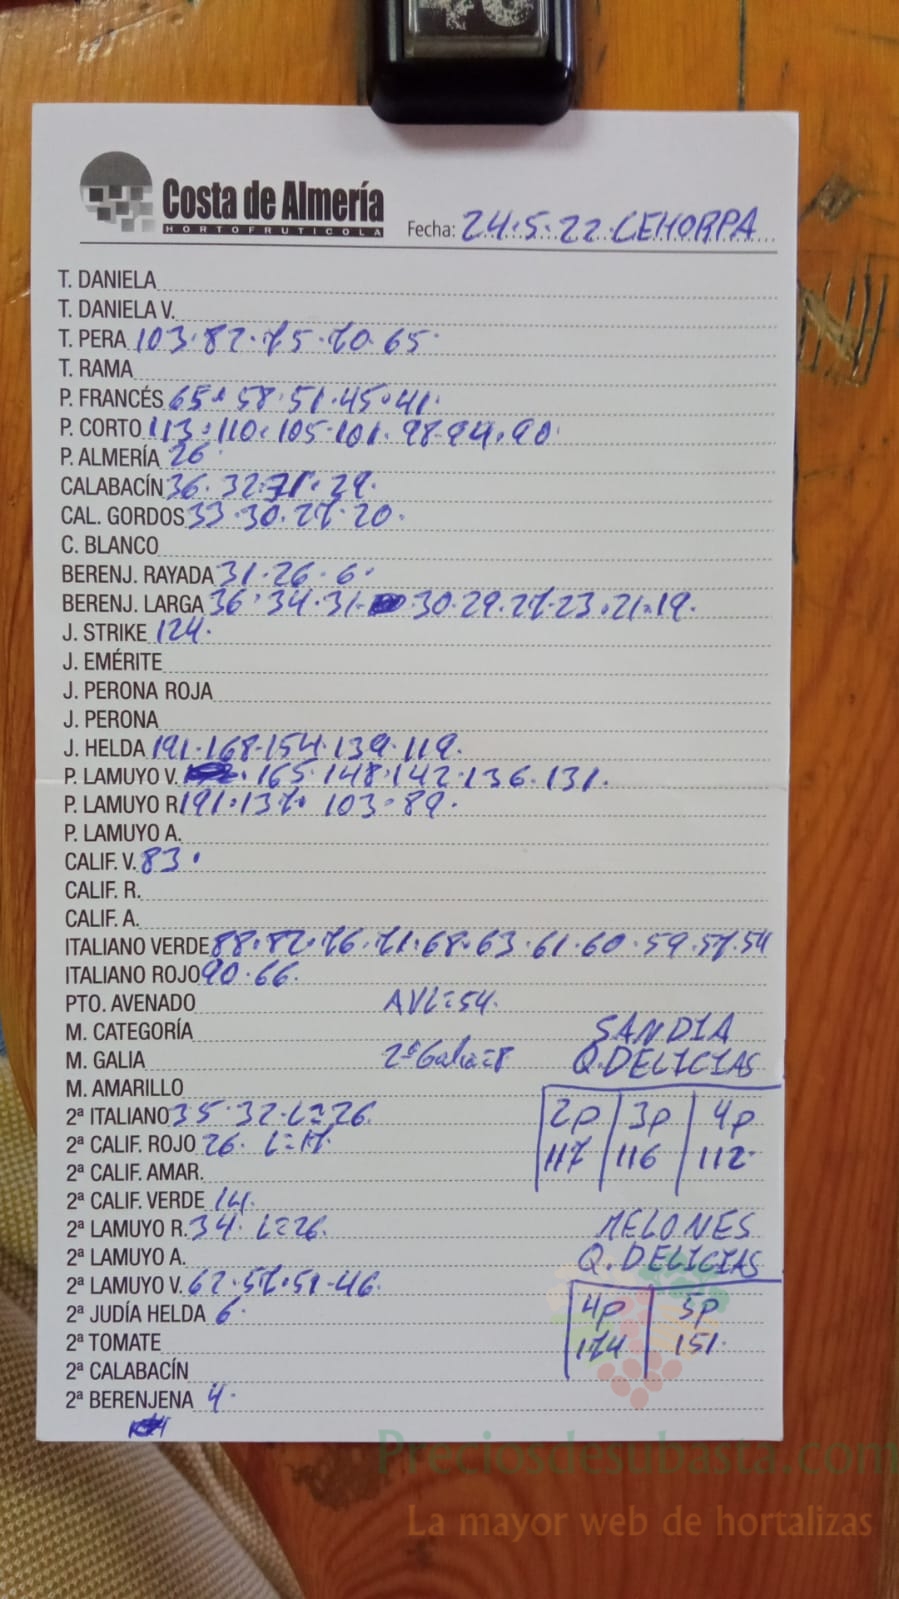 Costa de Almería
HORTOFRUTICOLA
Fecha: 24.5.22 CEHORPA
T. DANIELA
T. DANIELA V.
T. PERA 103.82.75.70.65.
T. RAMA
P. FRANCÉS 65.58.51.45.41.
P. CORTO 113.110.105.101.98.94.90.
P. ALMERÍA 26.
CALABACÍN 36.32.31.29.
CAL. GORDOS 33.30.27.20.
C. BLANCO
BERENJ. RAYADA 31.26.6.
BERENJ. LARGA 36.34.31.30.29.27.23.21.19.
J. STRIKE 124.
J. EMÉRITE
J. PERONA ROJA
J. PERONA
J. HELDA 191.168.154.139.119.
P. LAMUYO V. 165.148.142.136.131.
P. LAMUYO R 191.137.103.89.
P. LAMUYO A.
CALIF. V. 83.
CALIF. R.
CALIF. A.
ITALIANO VERDE 88.82.76.71.68.63.61.60.59.57.54
ITALIANO ROJO 90.66.
PTO. AVENADO AVL=54.
M. CATEGORÍA
SANDIA
M. GALIA 2ª Galia=8
Q.DELICIAS
M. AMARILLO
2ª ITALIANO 35.32.L=26.
2p 3p 4p
2ª CALIF. ROJO 26. L=17
117 116 112.
2ª CALIF. AMAR.
2ª CALIF. VERDE 14.
2ª LAMUYO R. 34. L=26.
MELONES
2ª LAMUYO A.
Q.DELICIAS
2ª LAMUYO V. 62.57.51.46.
2ª JUDÍA HELDA 6.
4p 5p
2ª TOMATE
174 151.
2ª CALABACÍN
2ª BERENJENA 4.
Preciosdesubasta.com
La mayor web de hortalizas